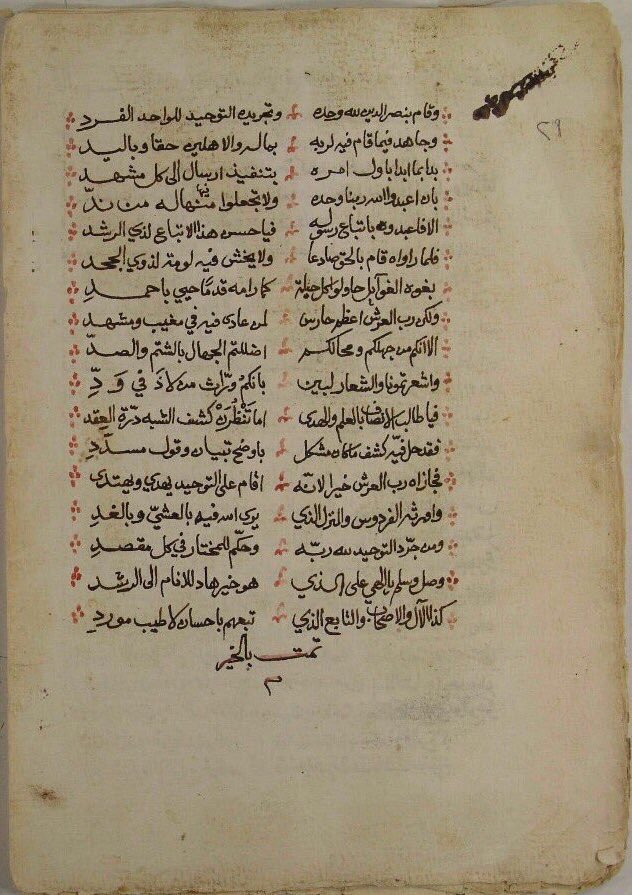 ٢٩
وقام بنصر الدين لله وحده وتجريده التوحيد للواحد الفرد
وجاهد فيما قام فيه لربه بماله والاهلين حقا وباليد
بدا بما ابدا باول امره بتنفيذ ارسال الى كل مشهد
بان اعبدوا الله ربنا وحده ولا تجعلوا منها له من ندّ
الا فاعبدوه باتباع رسوله فيا حسن هذا الاتباع لذي الرشد
فلما راواه قام بالحق صادعا ولا يخش فيه لومة لذوي الجحد
بغوه الغوآيل حاولوا كل حيلة كما رامه قدمًا حيي باحمدِ
ولكن رب العرش اعظم حارس لمن عادى فيه في مغيب ومشهد
الا انكم من جهلكم ومحالكم اضللتم الجهال بالشتم والصدّ
واشعرتمونا والشعار لبين بانكم ورّاث من لاذ في وَدِّ
فيا طالب الانصاف بالعلم والهدى اما تنظُرَنْ كشف الشبه درّة العِقد
فقد حل فيه كشف ما كان مشكل باوضح تبيان وقول مسدّدِ
فجازاه رب العرش خيرا لانّه اقام على التوحيد يهدي ويهتدى
واورثه الفردوس والمنزل الذي يرى الله فيه بالعشيّ وبالغدِ
ومن جرّد التوحيد لله ربّه وحكّم للمختار في كل مقصدِ
وصل وسلم يا الهي على الذي هو خير هاد للانام الى الرشد
كذا الآل والاصحاب والتابع الذي تبعهم باحسان لاطيب موردِ
تمت بالخير